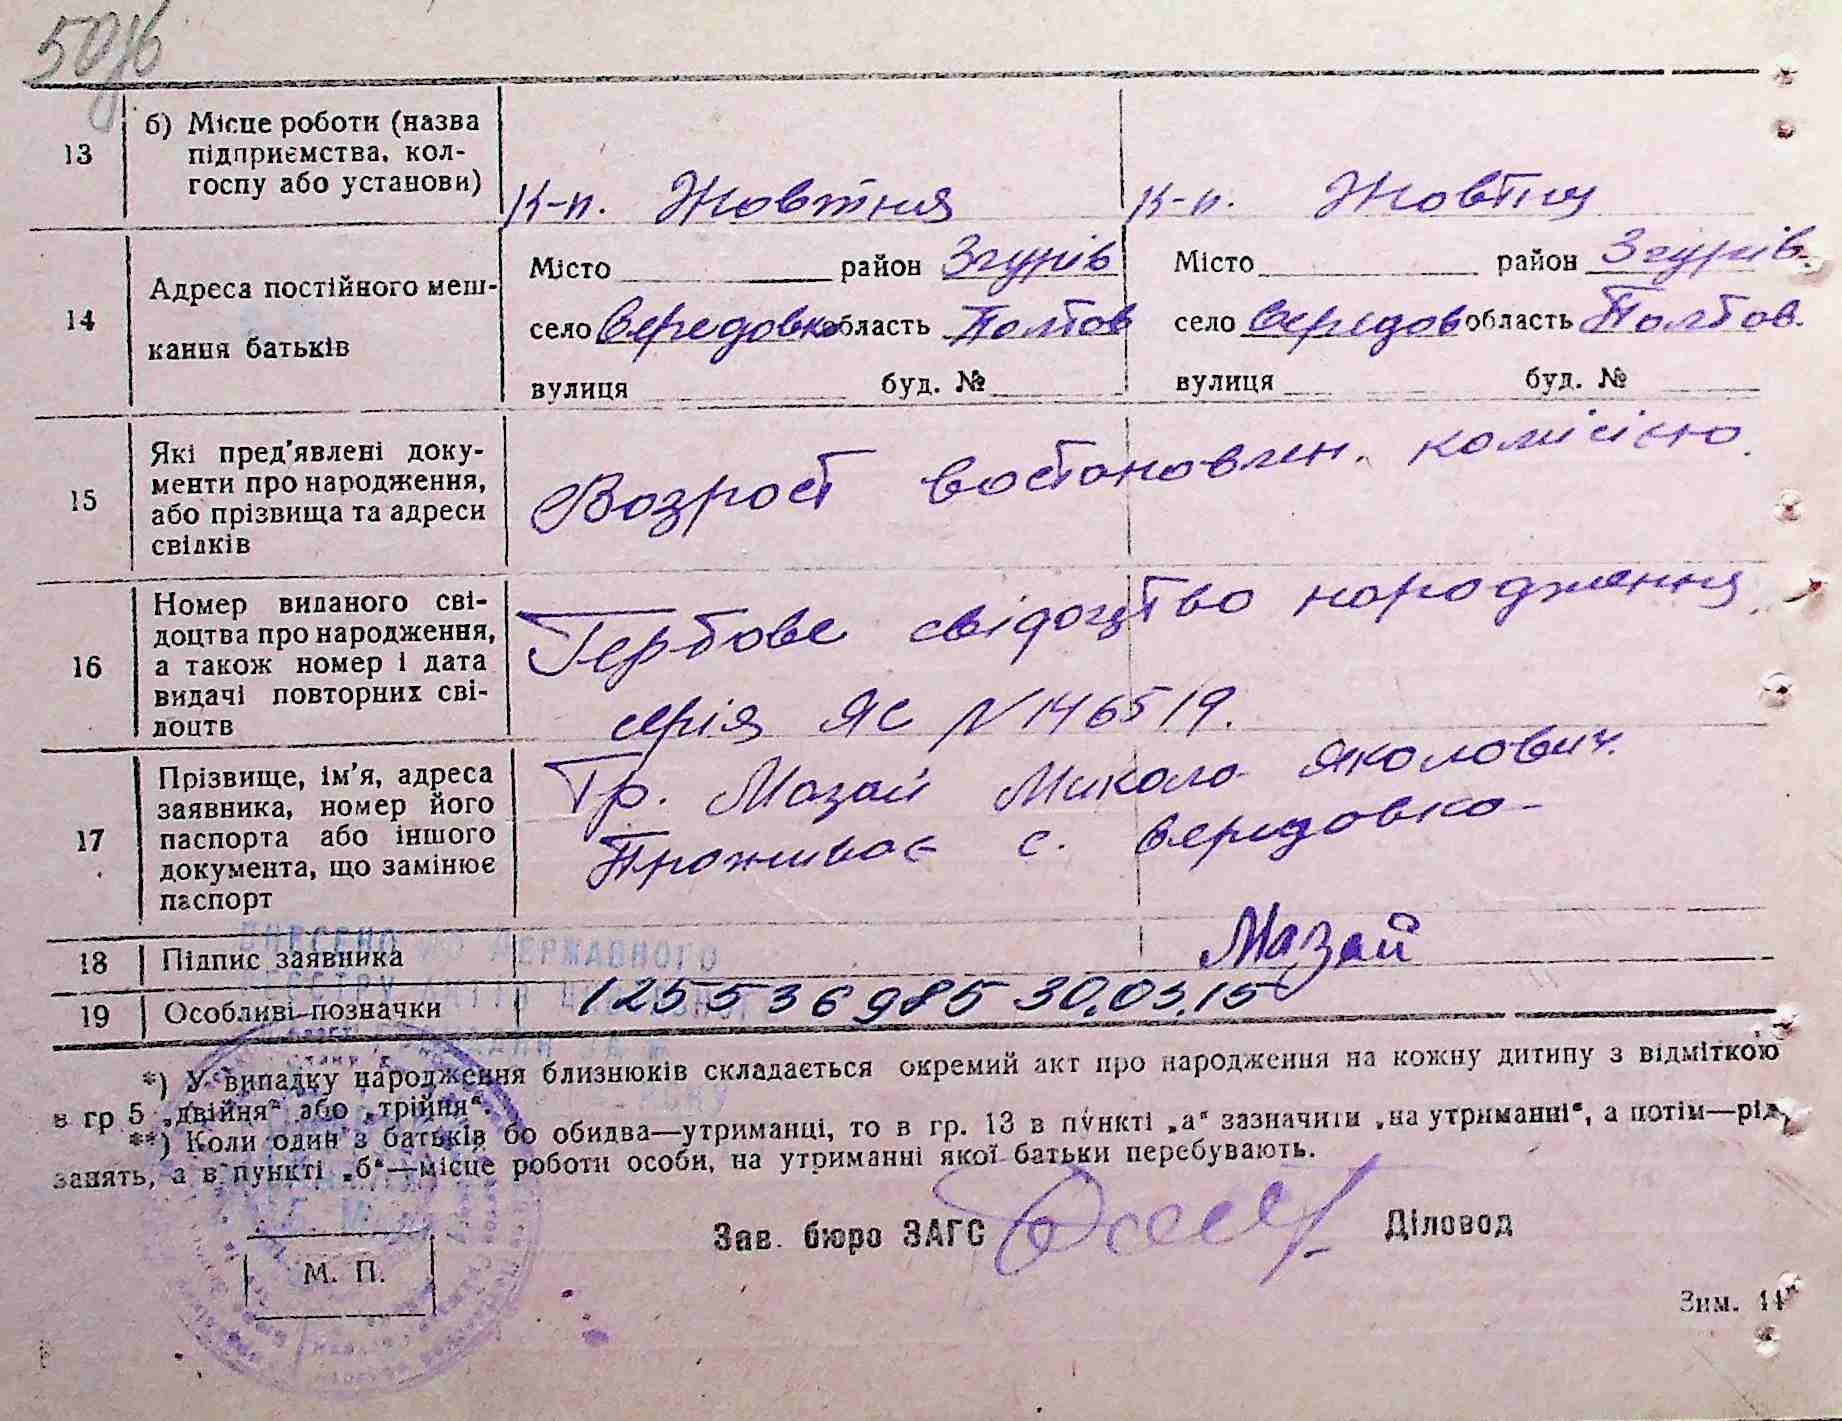 50зв
13
б) Місце роботи (назва
підприємства, кол-
госпу або установи)
К-п. Жовтня
К-п. Жовтня
14
Адреса постійного меш-
кання батьків
Місто район Згурів
село Середовка область Полтов
вулиця буд. №
Місто район Згурів.
село Середов область Полтов.
вулиця буд. №
15
Які пред'явлені доку-
менти про народження,
або прізвища та адреси
свідків
Возрост востоновлен. комісією.
16
Номер виданого сві-
доцтва про народження,
а також номер і дата
видачі повторних сві-
доцтв
Гербове свідоцтво народження
серія ЯС N 146519.
17
Прізвище, ім'я, адреса
заявника, номер його
паспорта або іншого
документа, що замінює
паспорт
Гр. Мазай Микола Яколович.
Проживає с. Середовка
18
Підпис заявника
Мазай
19
Особливі позначки
125536985 30.03.15
ВНЕСЕНО ДО ДЕРЖАВНОГО
РЕЄСТРУ АКТІВ
*) У випадку народження близнюків складається окремий акт про народження на кожну дитину з відміткою
в гр 5 „двійня“ або „трійня“.
**) Коли один з батьків бо обидва—утриманці, то в гр. 13 в пункті „а“ зазначити „на утриманні“, а потім—рід
занять, а в пункті „б“—місце роботи особи, на утриманні якої батьки перебувають.
Зав. бюро ЗАГС
Діловод
М. П.
Зим. 44